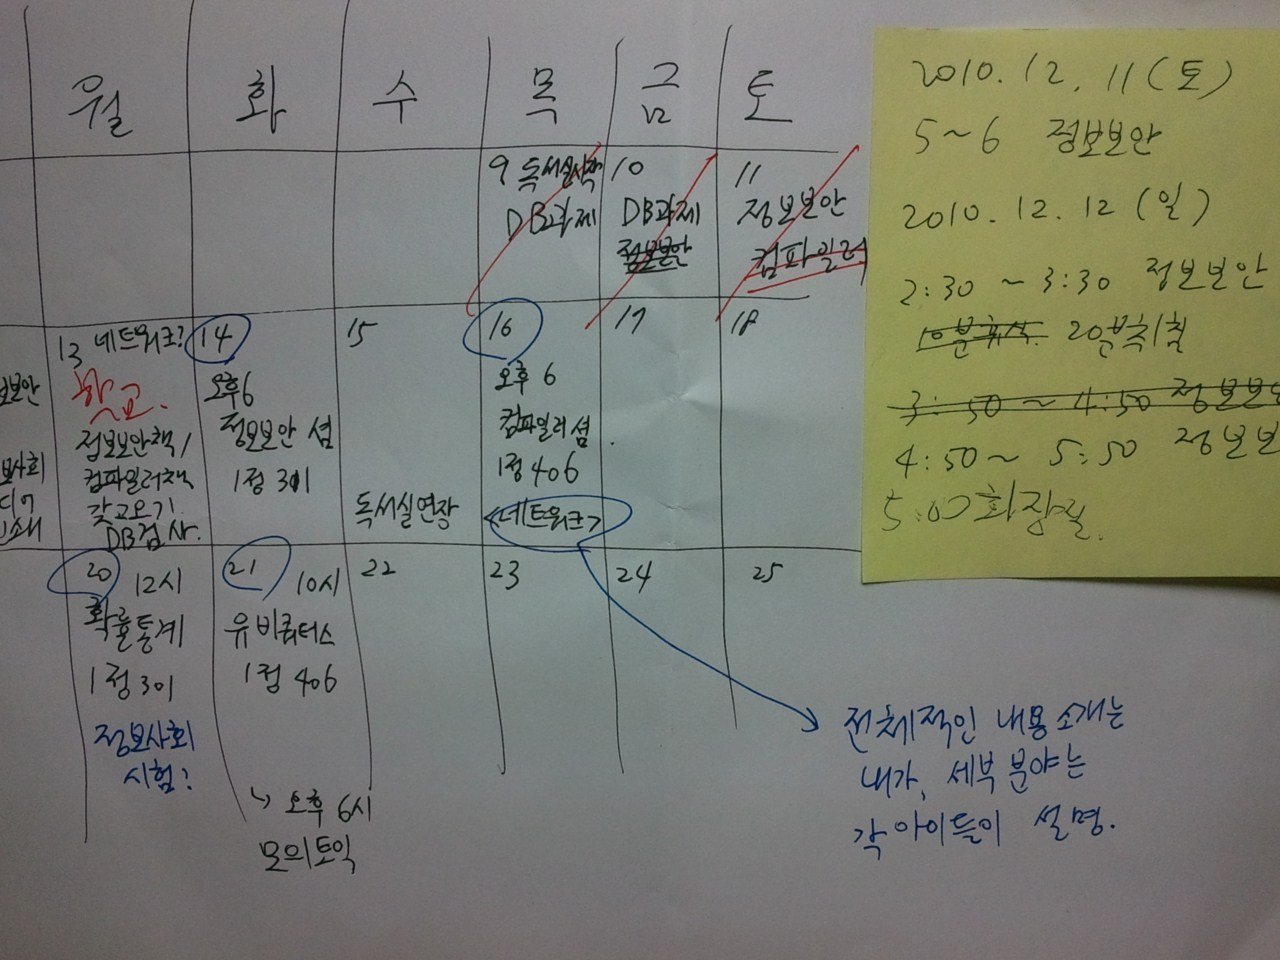 월 화 수 목 금 토
9 독서실시작
DB과제
10
DB과제
정보보안
11
정보보안
컴파일러
13 네트워크?
학교.
정보보안책/
컴파일러책
갖고오기
DB검사.
14
오후6
정보보안 셤
1정 301
15
독서실연장
16
오후 6
컴파일러셤
1정 406
<네트워크>
17
18
20 12시
확률통계
1정 301
정보사회
시험?
21 10시
유비쿼터스
1정 406
↳ 오후 6시
모의토익
22
23
24
25
전체적인 내용소개는
내가, 세부 분야는
각 아이들이 설명.
2010.12.11(토)
5~6 정보보안
2010.12.12(일)
2:30 ~ 3:30 정보보안
10분휴식 20분취침
3:50 ~ 4:50 정보보
4:50~ 5:50 정보보
5:00 화장실.